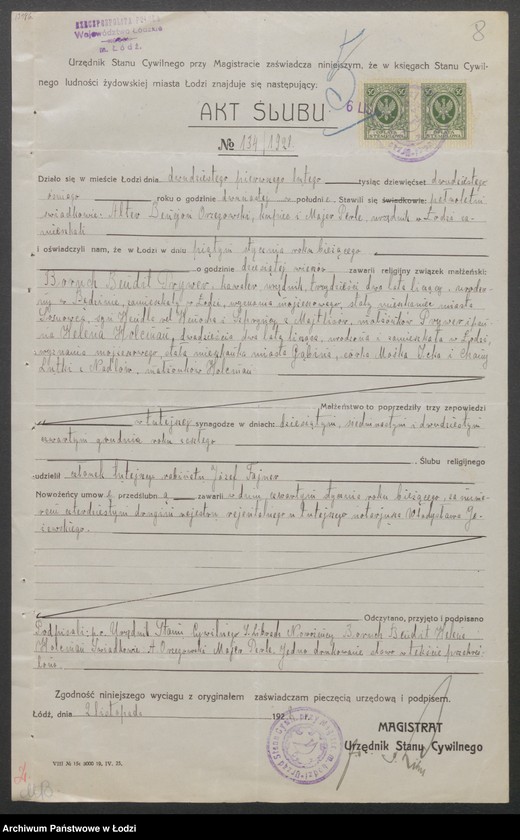 RZECZPOSPOLITA POLSKA
Województwo Łódzkie
m. Łódź.
8
Urzędnik Stanu Cywilnego przy Magistracie zaświadcza niniejszym, że w księgach Stanu Cywil-
nego ludności żydowskiej miasta Łodzi znajduje się następujący:
AKT ŚLUBU
№ 134/1921
Działo się w mieście Łodzi dnia dwudziestego pierwszego lutego tysiąc dziewięćset dwudziestego
roku o godzinie dwunastej w południe. Stawili się świadkowie: pełnoletni
świadkowie: Alter Bencjon Orzegowski, kupiec i Majer Perle, urzędnik w Łodzi za-
mieszkali
i oświadczyli nam, że w Łodzi w dniu piątym stycznia roku bieżącego
o godzinie dziesiątej wiecz. zawarli religijny związek małżeński:
Boruch Bendet Prywer, kawaler, urzędnik, trzydzieści dwa lata liczący, urodzo-
ny w Będzinie, zamieszkały w Łodzi, wyznania mojżeszowego, stały mieszkaniec miasta
Sosnowca, syn i z Majtlisów, małżonków Prywer i pan-
na Helena Holcman, dwadzieścia dwa lata licząca, urodzona i zamieszkała w Łodzi,
wyznania mojżeszowego, stała mieszkanka miasta Gąbina, córka Moszka Icka i Chawy
małżonków Holcman.
Małżeństwo to poprzedziły trzy zapowiedzi
w tutejszej synagodze w dniach: dziesiątym, siedmnastym i dwudziestym
czwartym grudnia roku zeszłego
Ślubu religijnego
udzielił członek tutejszego rabinatu Józef Fajner
Nowożeńcy umowę przedślubną zawarli w dniu czwartym stycznia roku bieżącego, za nume-
rem czterdziestym drugim rejestru rejentalnego u tutejszego notarjusza Władysława Je-
żewskiego.
Odczytano, przyjęto i podpisano
Podpisali: p.o. Urzędnik Stanu Cywilnego Nowożeńcy Boruch Bendet Helena
Holcman Świadkowie A. Orzegowski Majer Perle. Jedno drukowane słowo w tekście przekre-
ślono.
Zgodność niniejszego wyciągu z oryginałem zaświadczam pieczęcią urzędową i podpisem.
Łódź, dnia 2 listopada 192
MAGISTRAT
Urzędnik Stanu Cywilnego
VIII № 18. 5000 18. IV. 25.
Archiwum Państwowe w Łodzi